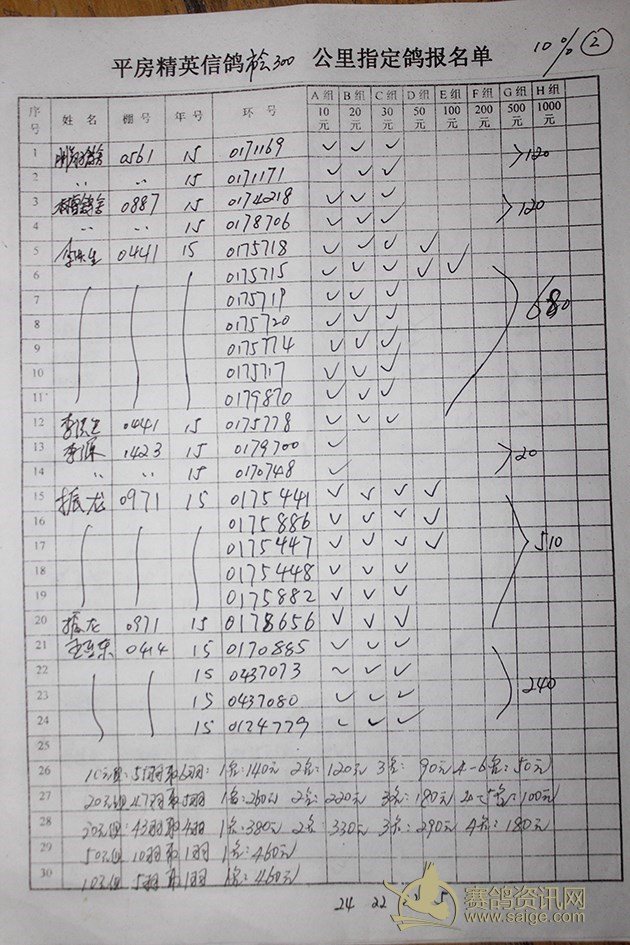 10% ②
平房精英信鸽 300 公里指定鸽报名单
序号 姓名 棚号 年号 环号 A组 10元 B组 20元 C组 30元 D组 50元 E组 100元 F组 200元 G组 500元 H组 1000元
1 0561 15 0171169 ✓ ✓ ✓ >120
2 〃 〃 15 0171171 ✓ ✓ ✓
3 0887 15 0174218 ✓ ✓ ✓ >120
4 〃 〃 15 0178706 ✓ ✓ ✓
5 0441 15 0175718 ✓ ✓ ✓ ✓
6 0175715 ✓ ✓ ✓ ✓ ✓
7 0175719 ✓ ✓ ✓ 680
8 0175720 ✓ ✓ ✓
9 0175774 ✓ ✓ ✓
10 0175717 ✓ ✓ ✓
11 0179870 ✓ ✓ ✓
12 0441 15 0175778 ✓ ✓ ✓
13 1423 15 0179700 ✓ >20
14 〃 〃 15 0170748 ✓
15 振龙 0971 15 0175441 ✓ ✓ ✓ ✓
16 0175886 ✓ ✓ ✓ ✓
17 0175447 ✓ ✓ ✓ ✓ 510
18 0175448 ✓ ✓ ✓
19 0175882 ✓ ✓ ✓
20 振龙 0971 15 0178656 ✓ ✓ ✓
21 0414 15 0170885 ✓ ✓ ✓
22 15 0437073 ✓ ✓ ✓ 240
23 15 0437080 ✓ ✓ ✓
24 15 0124779 ✓ ✓ ✓
25
26 10元组: 羽取6羽: 1名:140元 2名:120元 3名: 90元 4-6名:50元
27 20元组 47羽取5羽 1名:260元 2名:220元 3名:180元 4-5名:100元
28 30元组: 43羽取4羽 1名:380元 2名 330元 3名:290元 4名:180元
29 50元组 10羽取1羽 1名:460元
30 5羽取1羽 1名:460元
24 22
赛鸽资讯网
www.saige.com